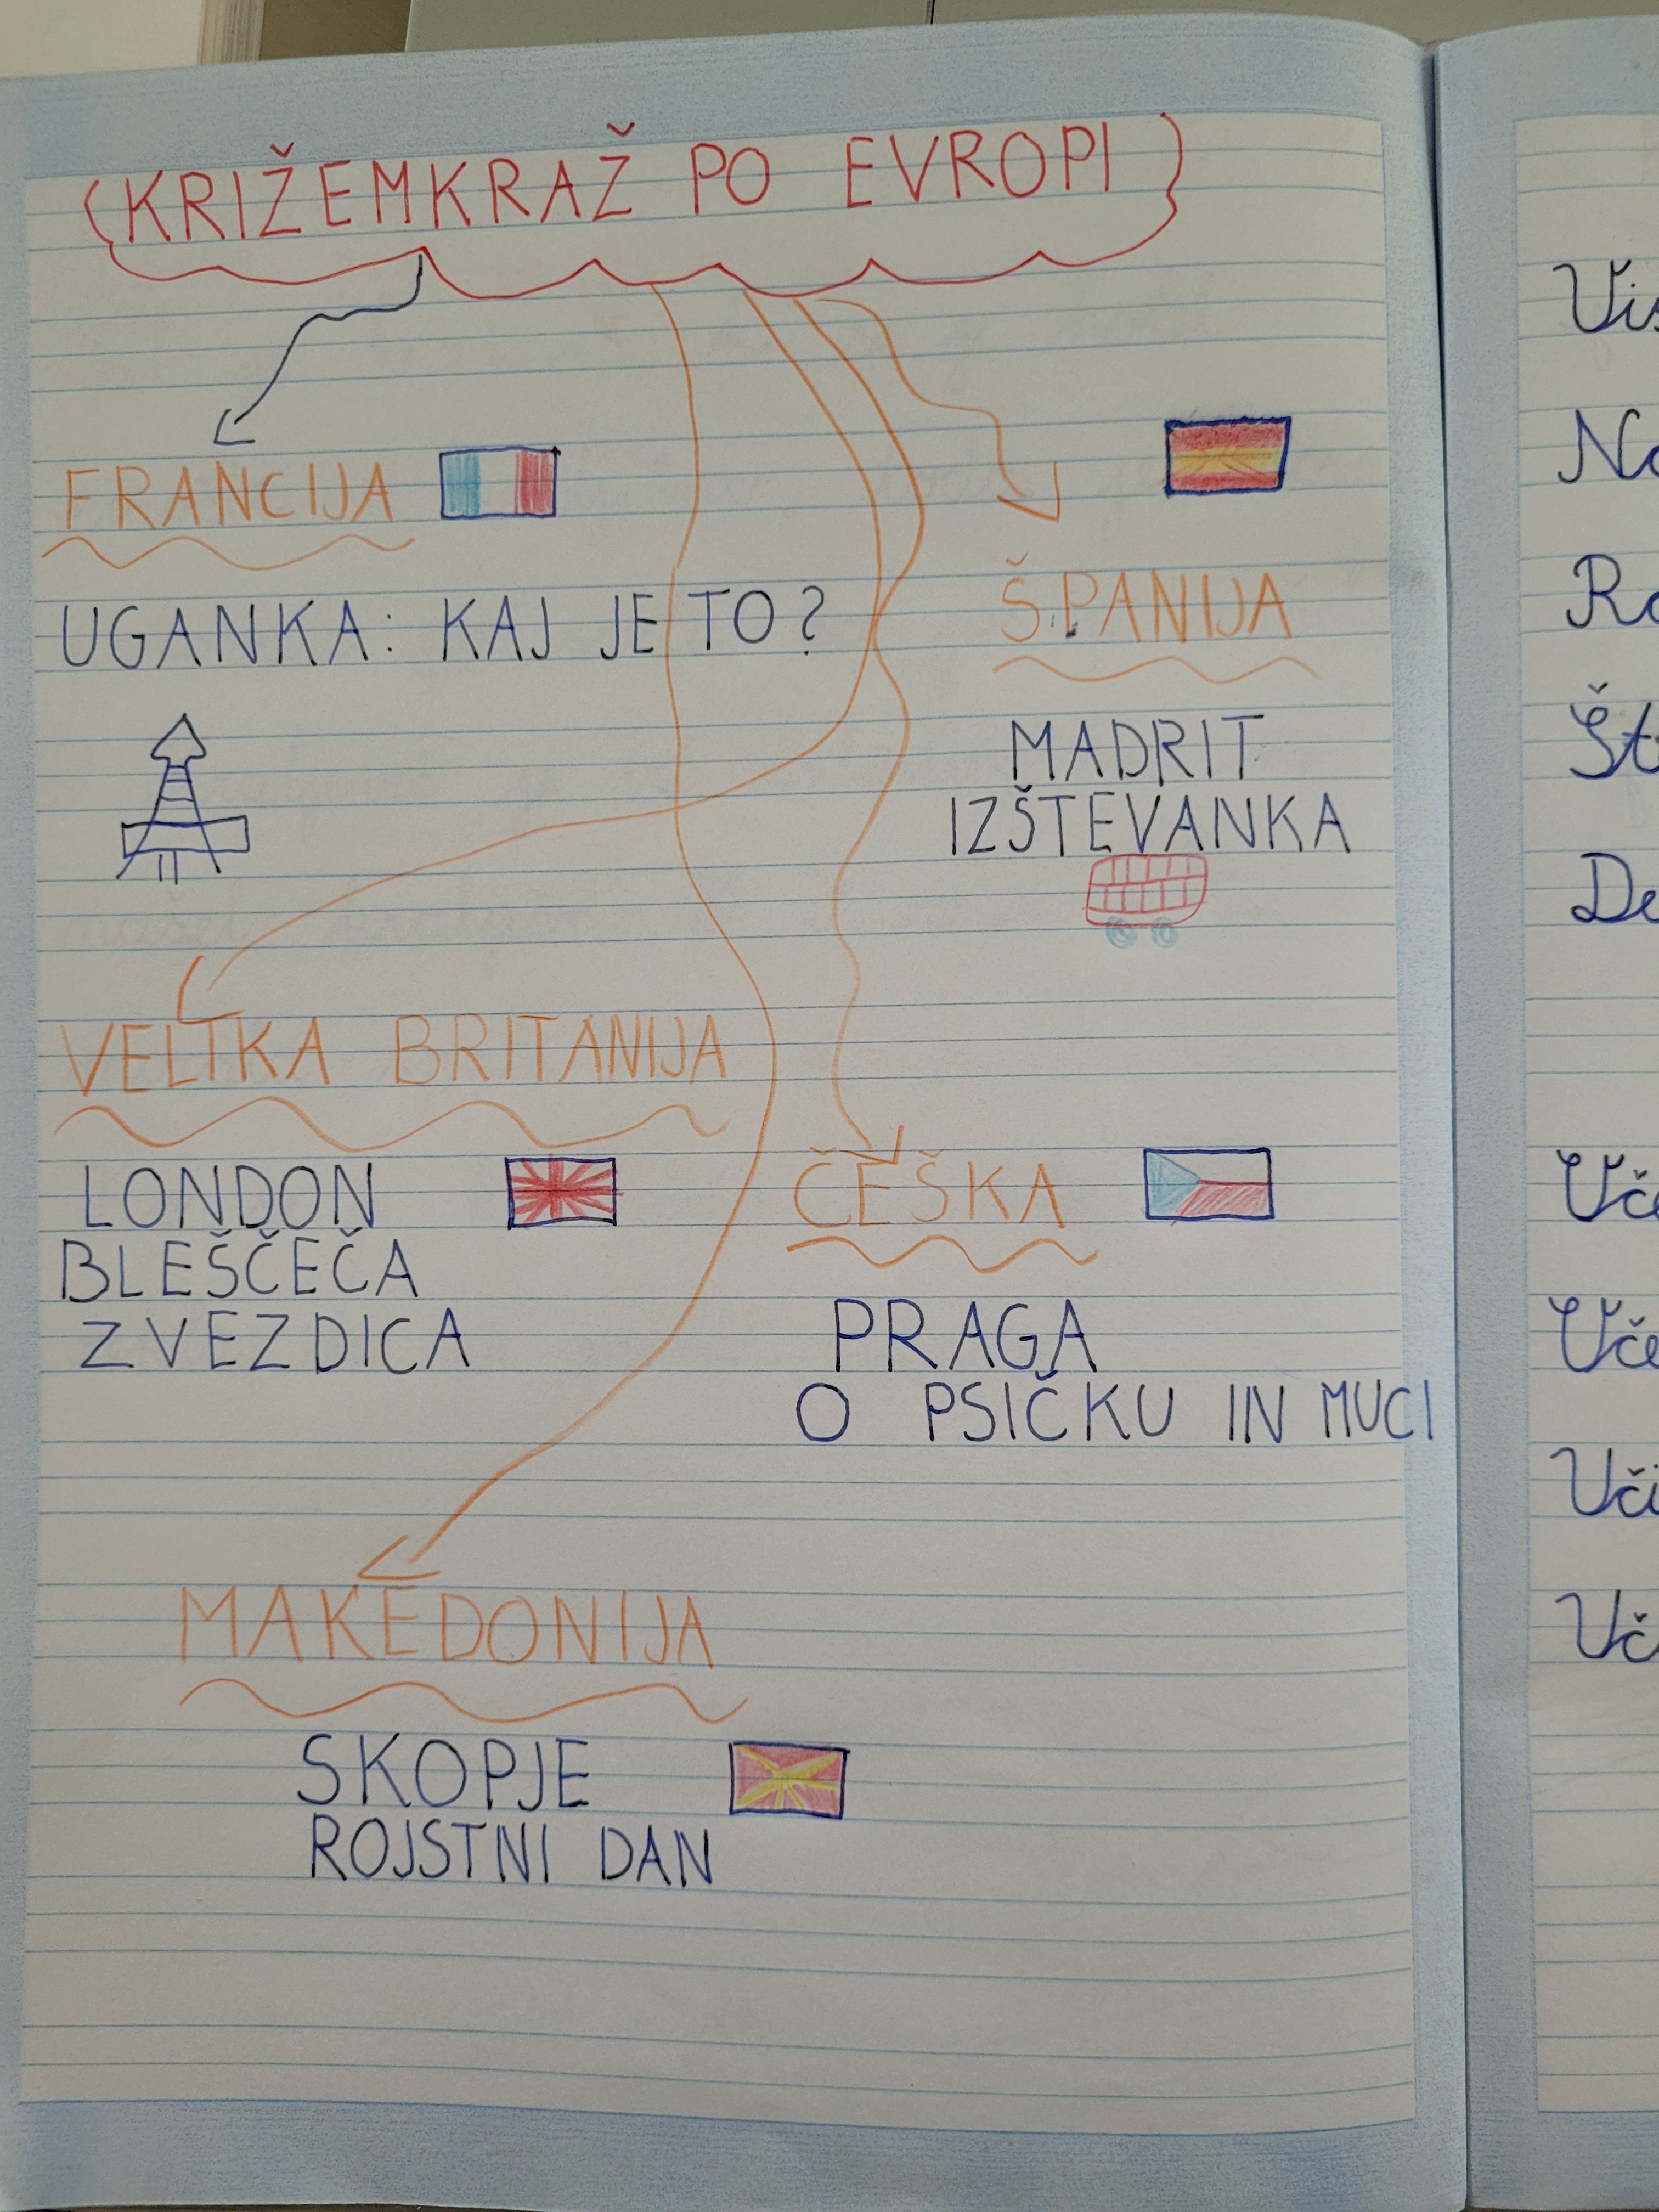 KRIŽEMKRAŽ PO EVROPI
FRANCIJA
UGANKA: KAJ JE TO?
ŠPANIJA
MADRIT
IZŠTEVANKA
VELIKA BRITANIJA
LONDON
BLEŠČEČA
ZVEZDICA
ČEŠKA
PRAGA
O PSIČKU IN MUCI
MAKEDONIJA
SKOPJE
ROJSTNI DAN